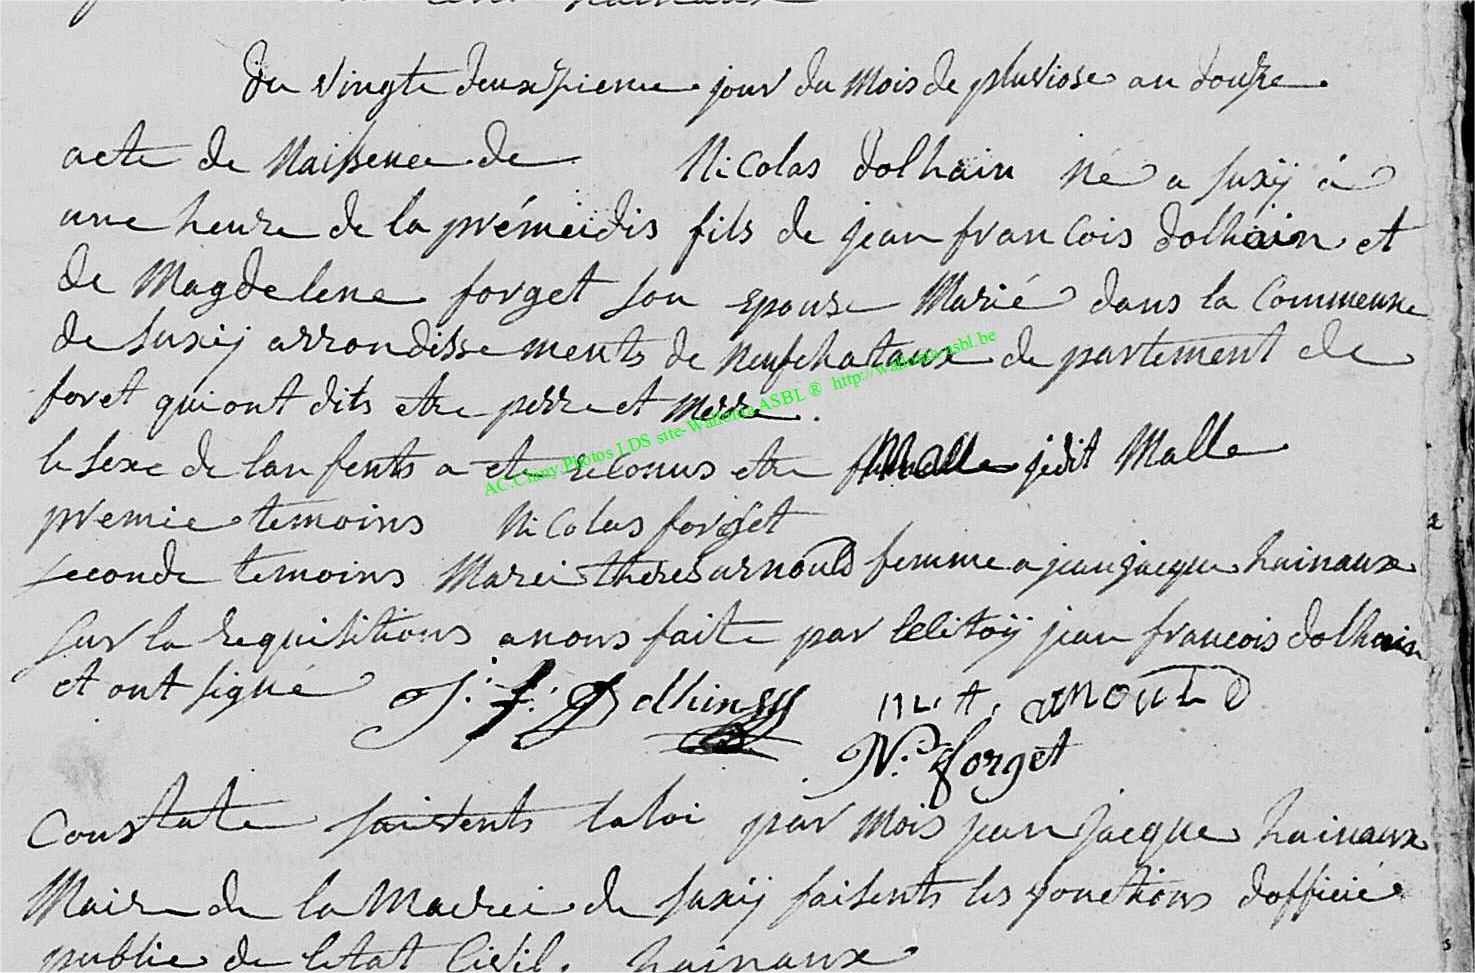 du vingte deuxzieme jour du mois de pluviose an douze
acte de Naissence de Nicolas dolhain né a suxÿ á
une heure de la prémeidis fils de jean francois dolhain et
de Magdelene forget son epouse Marié dans la Commeune
de suxÿ arrondissements de neufchateaux de partement de
foret qui ont dits etre perre et merre.
le sexe de lanfents a ete reconus etre malle je dit Malle
premie temoins Nicolas forget
seconde temoins Marei theres arnould femme a jean jacque hainaux
sur la requisitions a nous faite par le citoÿ jean francois dolhain
et ont signé J: f: Dolhin M. t. arnould
N: forget
Constate suivents la loi par mois jean jacque hainaux
Maire de la Maerei de suxÿ faisents les fonctions dofficié
public de letat Civil. hainaux
AC.Chiny.Photos LDS site-Wallonia ASBL ® http://wallonia-asbl.be